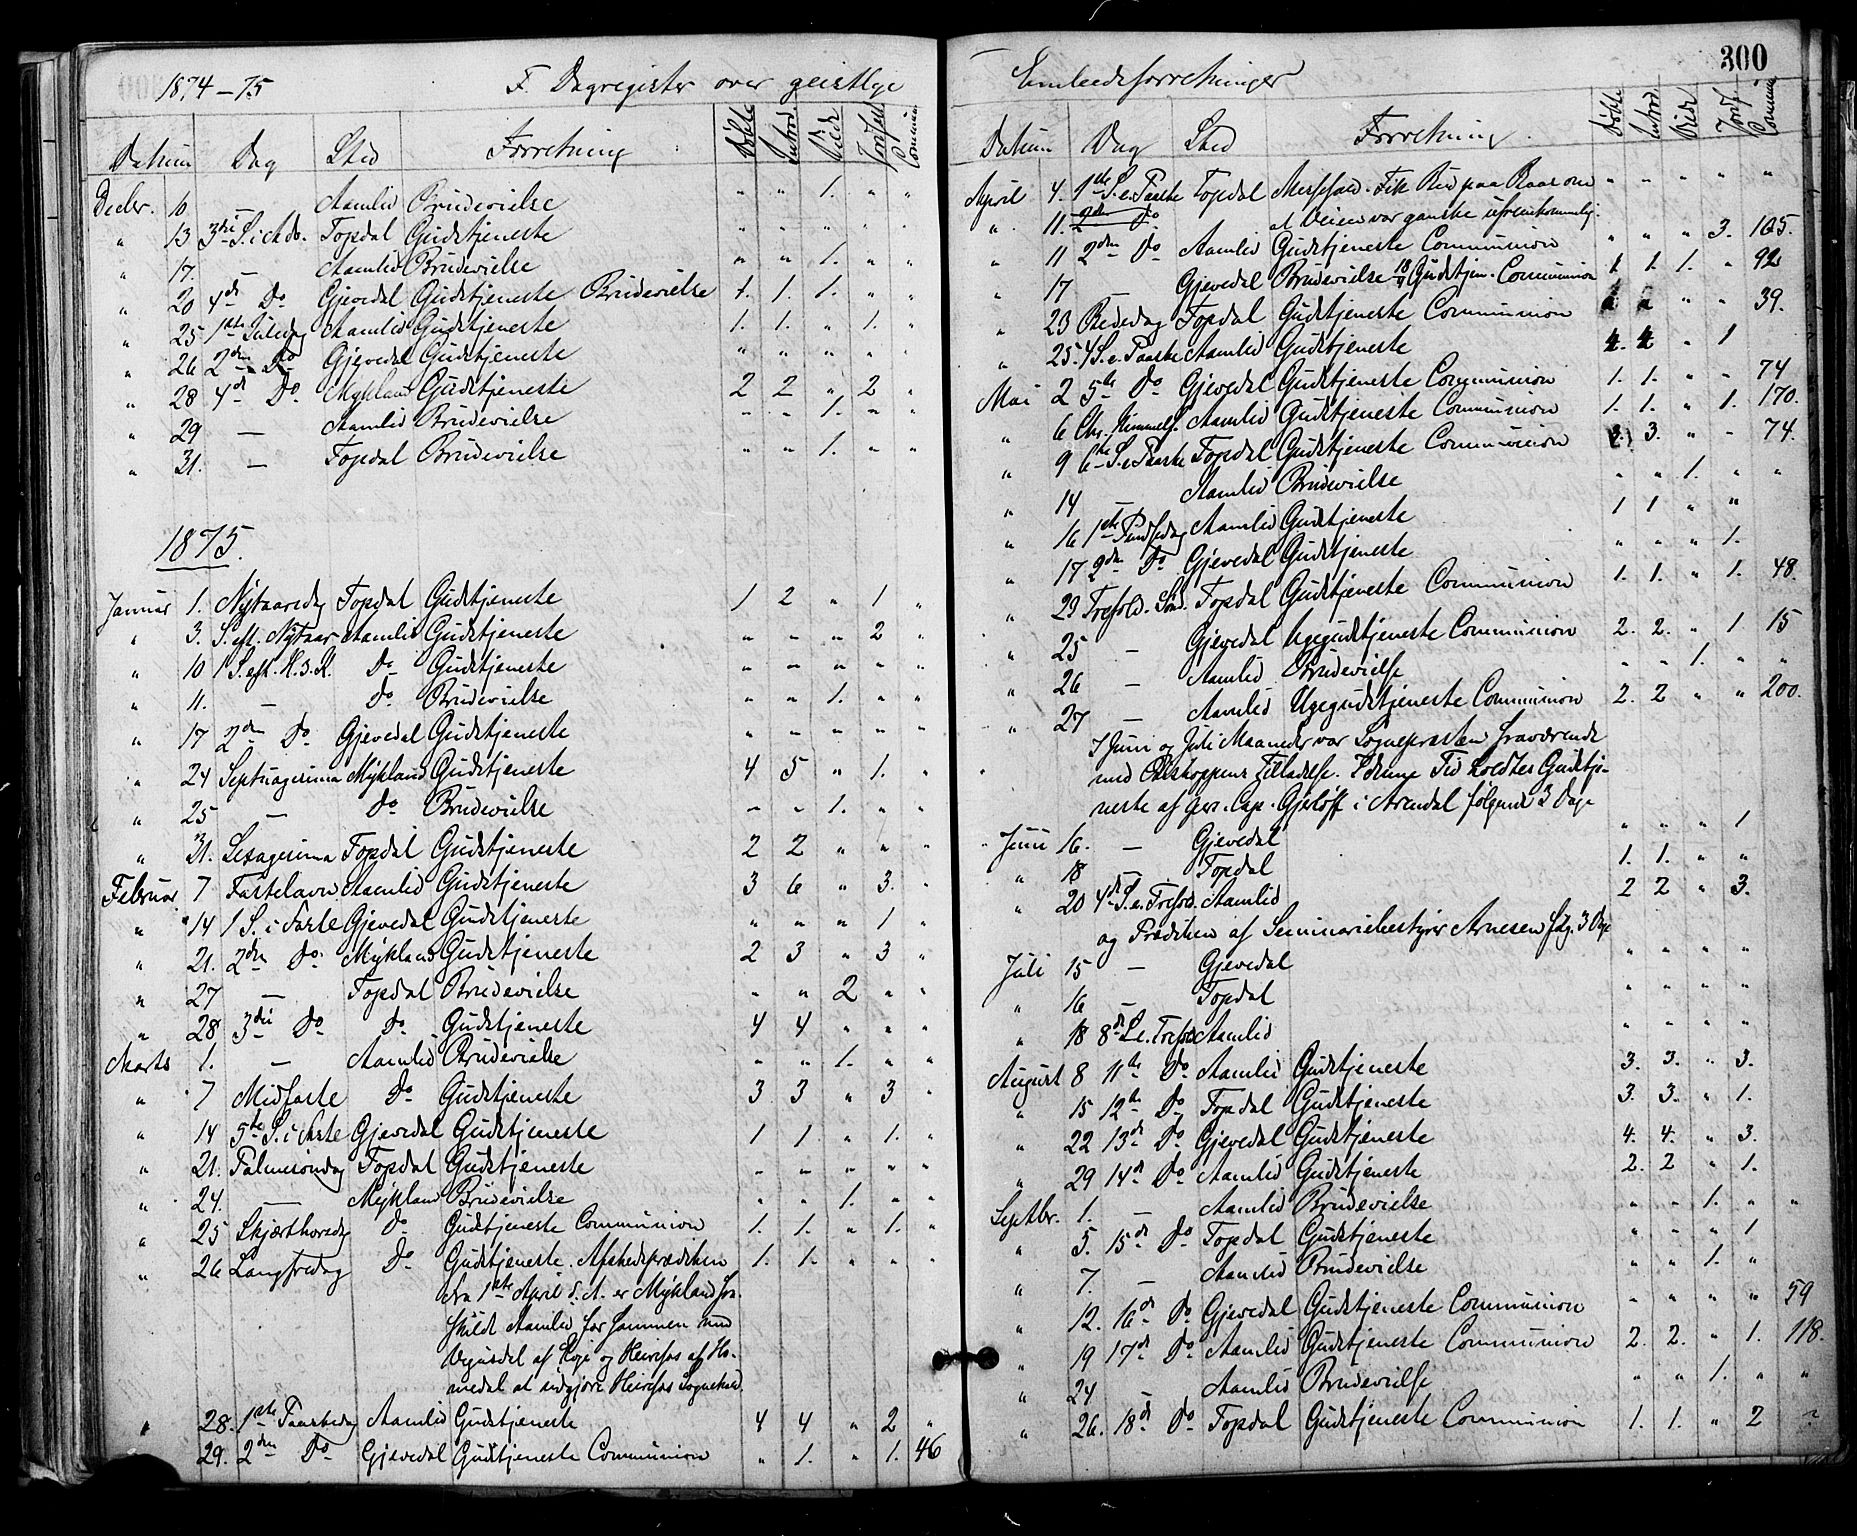 1874-75 F. Dagregister over geistlige
Datum Dag Sted Forretning Døbte Introd. Viede Jordf. Commun.
Decbr. 10 — Aamlid Brudevielse " " 1. " "
" 13 3die S. i Adv. Topdal Gudstjeneste " " " " "
" 17. — Aamlid Brudevielse " " 1. " "
" 20 4de Do Gjevedal Gudstjeneste Brudevielse 1. 1. 1. " "
" 25 1ste Juledag Aamlid Gudstjeneste 1. 1. " 1. "
" 26 2den Do Gjevedal Gudstjeneste " " " " "
" 28 4de Do Mykland Gudstjeneste 2 2 " 2 "
" 29 — Aamlid Brudevielse " " 1. " "
" 31. — Topdal Brudevielse " " 1. " "
1875.
Januar 1. Nytaarsdag Topdal Gudstjeneste 1 2 " 1 "
" 3. S. eft. Nytaar Aamlid Gudstjeneste " " " 2 "
" 10 1 S. eft. H. 3. K. Do Gudstjeneste " " " " "
" 11. — Do Brudevielse " " 1. " "
" 17 2den Do Gjevedal Gudstjeneste " " " " "
" 24 Septuagesima Mykland Gudstjeneste 4 5 " 1. "
" 25 — Do Brudevielse " " 1. " "
" 31. Sexagesima Topdal Gudstjeneste 2 2 " " "
Februar 7 Fastelavn Aamlid Gudstjeneste 3 6 " 3. "
" 14 1 S. i Faste Gjevedal Gudstjeneste " " " 1 "
" 21. 2den Do Mykland Gudstjeneste 2 3 " 3 "
" 27 — Topdal Brudevielse " " 2 " "
" 28 3die Do Do Gudstjeneste 4 4 " " "
Marts 1. — Aamlid Brudevielse " " 1. " "
" 7 Midfaste Do Gudstjeneste 3 3 " 3 "
" 14 5te S. i Faste Gjevedal Gudstjeneste 1 1 " 1. "
" 21. Palmesøndag Topdal Gudstjeneste " " " " "
" 24. — Mykland Brudevielse " " 1. " "
" 25 Skjærthorsdag Do Gudstjeneste Communion 1. 1. " 1. "
" 26 Langfredag Do Gudstjeneste. Afskedsprædiken 1. 1. " " "
fra 1ste April d. A. er Mykland fra
skildt Aamlid for sammen med
Vegusdal af Evje og Heirefos af Ho-
medal at udgjøre Heirefos Sognekald.
" 28. 1ste Paaskedag Aamlid Gudstjeneste 4 4 " 2 "
29. 2den Do Gjevedal Gudstjeneste Communion " 1. " 1. 46
Embedsforretninger 300
Datum Dag Sted Forretning Døbte Introd. Viede Jordf. Commun.
April 4. 1ste S. e. Paaske Topdal Messefald. Fik Bud paa Raas om " " " " "
" 11. 2den Do at Veien var ganske ufremkommelig.
" 11 2den Do Aamlid Gudstjeneste Communion " " " 3. 105.
" 17 — Gjevedal Brudevielse 18/4 Gudstjen. Communion 1. 1. 1. " 92
" 23 Bededag Topdal Gudstjeneste Communion " " 39.
" 25. 4 S. e. Paaske Aamlid Gudstjeneste 4. 4 " 1
Mai 2 5te Do Gjevedal Gudstjeneste Communion 1. 1. " " 74
" 6 Chr. Himmelf. Aamlid Gudstjeneste Communion 1. 1. " 1. 170.
" 9 6te S. e. Paaske Topdal Gudstjeneste Communion 3. 3. " " 74.
" 14 — Aamlid Brudevielse " " 1. " "
" 16 1ste Pindsedag Aamlid Gudstjeneste 1 1 " "
" 17 2den Do Gjevedal Gudstjeneste " " " 1.
" 23 Trefold. Sønd. Topdal Gudstjeneste Communion 1. 1. " 1. 48.
" 25 — Gjevedal Ugegudstjeneste Communion 2. 2. " 1 15
" 26 — Aamlid Brudevielse " " 1. " "
" 27 — Aamlid Ugegudstjeneste Communion 2. 2 " " 200.
I Juni og Juli Maaneder var Sognepræsten fraværende
med Biskoppens Tilladelse. I denne Tid holdtes Gudstje-
neste af pers. Cap. Gjerløff i Arendal følgende 3 Dage
Juni 16. — Gjevedal " " " 1
" 18 — Topdal 1. 1. " "
" 20 4de S. e. Trefold. Aamlid 2 2 " 3.
og Prædiken af Seminariebestyrer Arnesen følg. 3 Dage
Juli 15 — Gjevedal " " " "
" 16 — Topdal " " " "
" 18 8de S. e. Trefold Aamlid " " " "
August 8 11te Do Aamlid Gudstjeneste 3. 3. " 3.
" 15 12te Do Topdal Gudstjeneste 3. 3. " 1.
" 22 13de Do Gjevedal Gudstjeneste 4. 4. " 3.
" 29 14de Do Aamlid Gudstjeneste 2. 2 " 1.
Septbr. 1. — Aamlid Brudevielse " " 1. " "
" 5. 15de Do Topdal Gudstjeneste " " " 1
" 7. — Aamlid Brudevielse " " 1. "
" 12. 16de Do Gjevedal Gudstjeneste Communion " " " " 59
" 19 17de Do Aamlid Gudstjeneste Communion 2. 2. " 1. 118.
" 24 — Aamlid Brudevielse " " 1. " "
" 26. 18de Do Topdal Gudstjeneste Communion 1. 1. " 2 ?